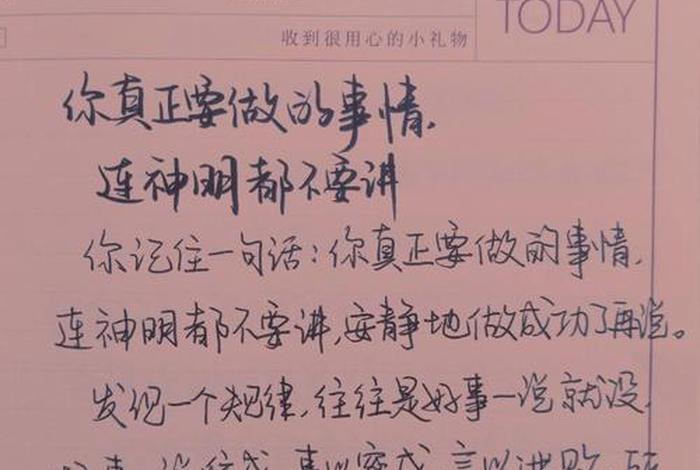 TODAY
收到很用心的小礼物
你真正要做的事情,
连神明都不要讲
你记住一句话:你真正要做的事情,
连神明都不要讲,安静地做成功了再说。
发现一个规律,往往是好事一说就没,